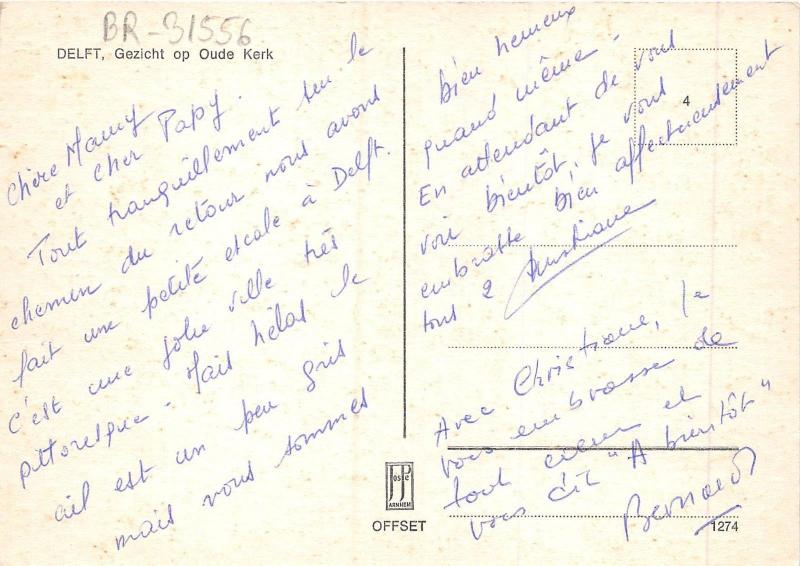 BR-31556
DELFT, Gezicht op Oude Kerk
Chère Mamy
et cher Papy.
Tout tranquillement sur le
chemin du retour nous avons
fait une petite escale à Delft.
C'est une jolie ville très
pittoresque - Mais hélas le
ciel est un peu gris
mais nous sommes
bien heureux
quand même -
En attendant de vous
voir bientôt, je vous
embrasse bien affectueusement
tous 2 Christiane
Avec Christiane, je
vous embrasse de
tout coeur et
vous dit "A bientôt"
Bernard
4
JosPé
ARNHEM
OFFSET
1274